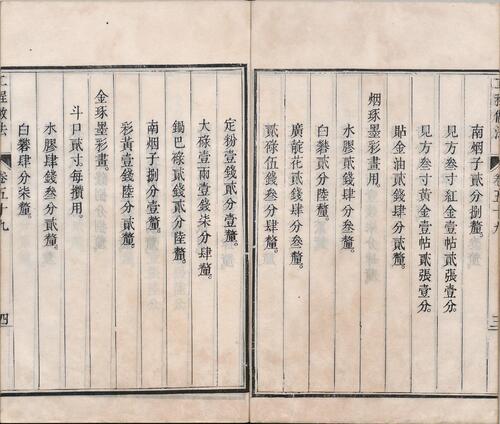 南烟子貳分捌釐。
見方叁寸紅金壹帖貳張壹分。
見方叁寸黃金壹帖貳張壹分。
貼金油貳錢肆分貳釐。
烟琢墨彩畫用。
水膠貳錢肆分叁釐。
白礬貳分陸釐。
廣靛花貳錢肆分叁釐。
貳祿伍錢叁分肆釐。
三
定粉壹錢貳分壹釐。
大碌壹兩壹錢柒分肆釐。
鍋巴碌貳錢貳分陸釐。
南烟子捌分壹釐。
彩黃壹錢陸分貳釐。
金琢墨彩畫。
斗口貳寸每攢用。
水膠肆錢叁分貳釐。
白礬肆分柒釐。
工程做法
卷五十九
四